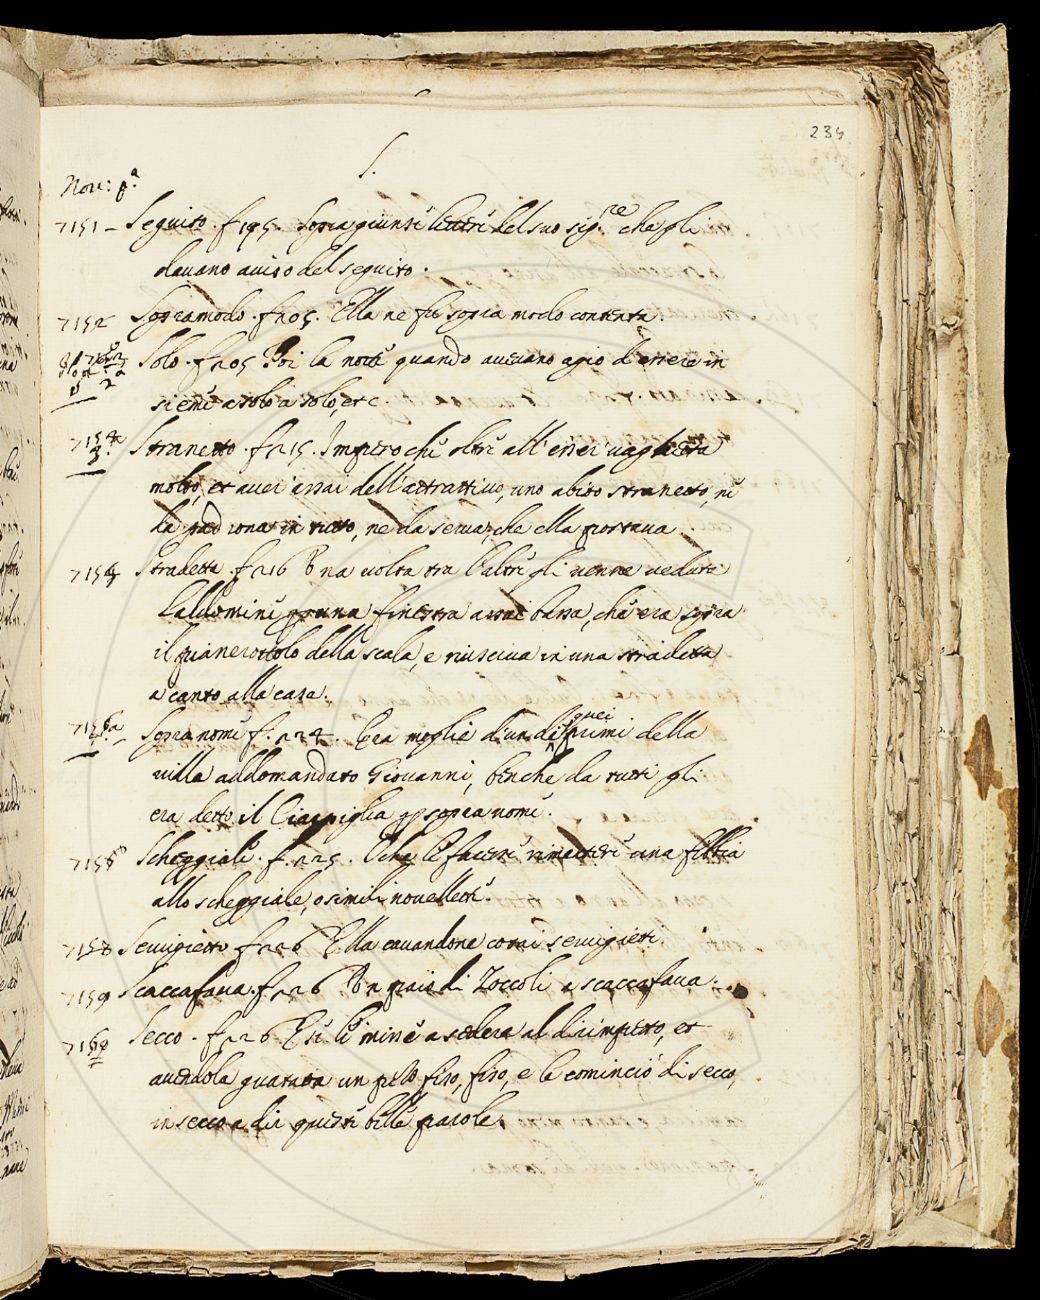 234
S.
Nou: p.ª
7151 – Seguito. f 195. Sopragiunse lettere del suo sig.re che gli
dauano auiso del seguito.
7152 Sopramodo. f 205. Ella ne fu sopra modo contenta.
Solo. f 205 Poi la notte quando aueuano agio d'essere in
sieme a solo a solo, etc.
7154 Stranetto. f 215. Impero che oltre all'esser uaghetta
molto, et auer assai dell'attrattiuo, uno abito stranetto, ne
da in tutto, ne da serua, che ella portaua.
715 Stradetta. f 216 Una uolta tra l'altre gli uenne ueduta
una finestra assai bassa, che era sopra
il pianerottolo della scala, e riusciua in una stradetta
a canto alla casa.
715 Sopranome f. 224. Era moglie d'un di quei primi della
uilla addomandato Giouanni, benche da tutti gli
era detto il Ciarpiglia p sopranome.
715 Scheggiale. f. 225. Che le facesse rimettere una fibbia
allo scheggiale, o simili nouellette.
7158 Seruigietto f 226 Ella cauandone cotai seruigietti.
7159 Scaccafaua. f 226 Un paio di Zoccoli a scaccafaua.
7160 Secco. f 226 E se le mise a sedera al dirimpeto, et
auendola guatata un pezzo fiso, fiso, e le cominciò di secco,
in secco a dir queste belle parole.